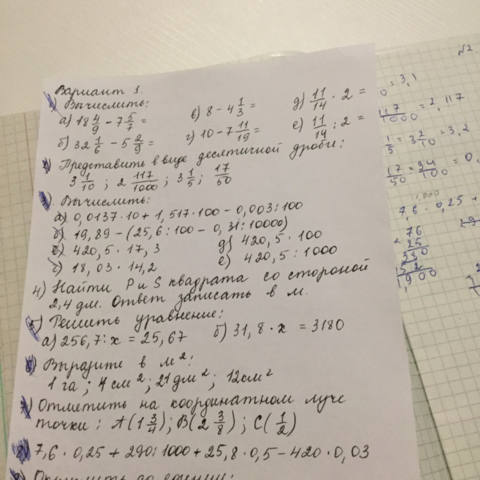 Вариант 1.
Вычислить:
а) 18 4/9 - 7 5/7 =
в) 8 - 4 1/3 =
д) 11/14 · 2 =
б) 32 1/6 - 5 2/9 =
г) 10 - 7 11/19 =
е) 11/14 : 2 =
Представить в виде десятичной дроби:
3 1/10 ; 2 117/1000 ; 3 1/5 ; 17/50
Вычислить:
а) 0,0137 · 10 + 1,517 · 100 - 0,003 : 100
б) 19,89 - (25,6 : 100 - 0,31 : 10000)
в) 420,5 · 17,3
д) 420,5 · 100
с) 18,03 · 14,2
е) 420,5 : 1000
4) Найти P и S квадрата со стороной
2,4 дм. Ответ записать в м.
Решить уравнение:
а) 256,7 : x = 25,67
б) 31,8 · x = 3180
Выразите в м²:
1 га ; 4 см² ; 21 дм² ; 12 см²
Отметить на координатном луче
точки : A(1 3/4) ; B(2 3/8) ; C(1/2)
7,6 · 0,25 + 290 : 1000 + 25,8 · 0,5 - 420 · 0,03
№2
= 3,1
117/1000 = 2,117
= 3,2
17/50
7,6 · 0,25 +
76
25
1900